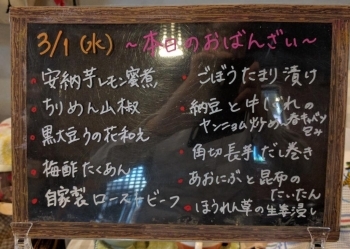 3/1(水) ～本日のおばんざい～
・安納芋レモン蜜煮
・ちりめん山椒
・黒大豆うの花和え
・梅酢たくあん
・自家製ローストビーフ
・ごぼうたまり漬け
・納豆と牛しぐれの
ヤンニョム炒め 春キャベツ包み
・角切長芋だし巻き
・あおにぶと昆布の
たいたん
・ほうれん草の生姜浸し